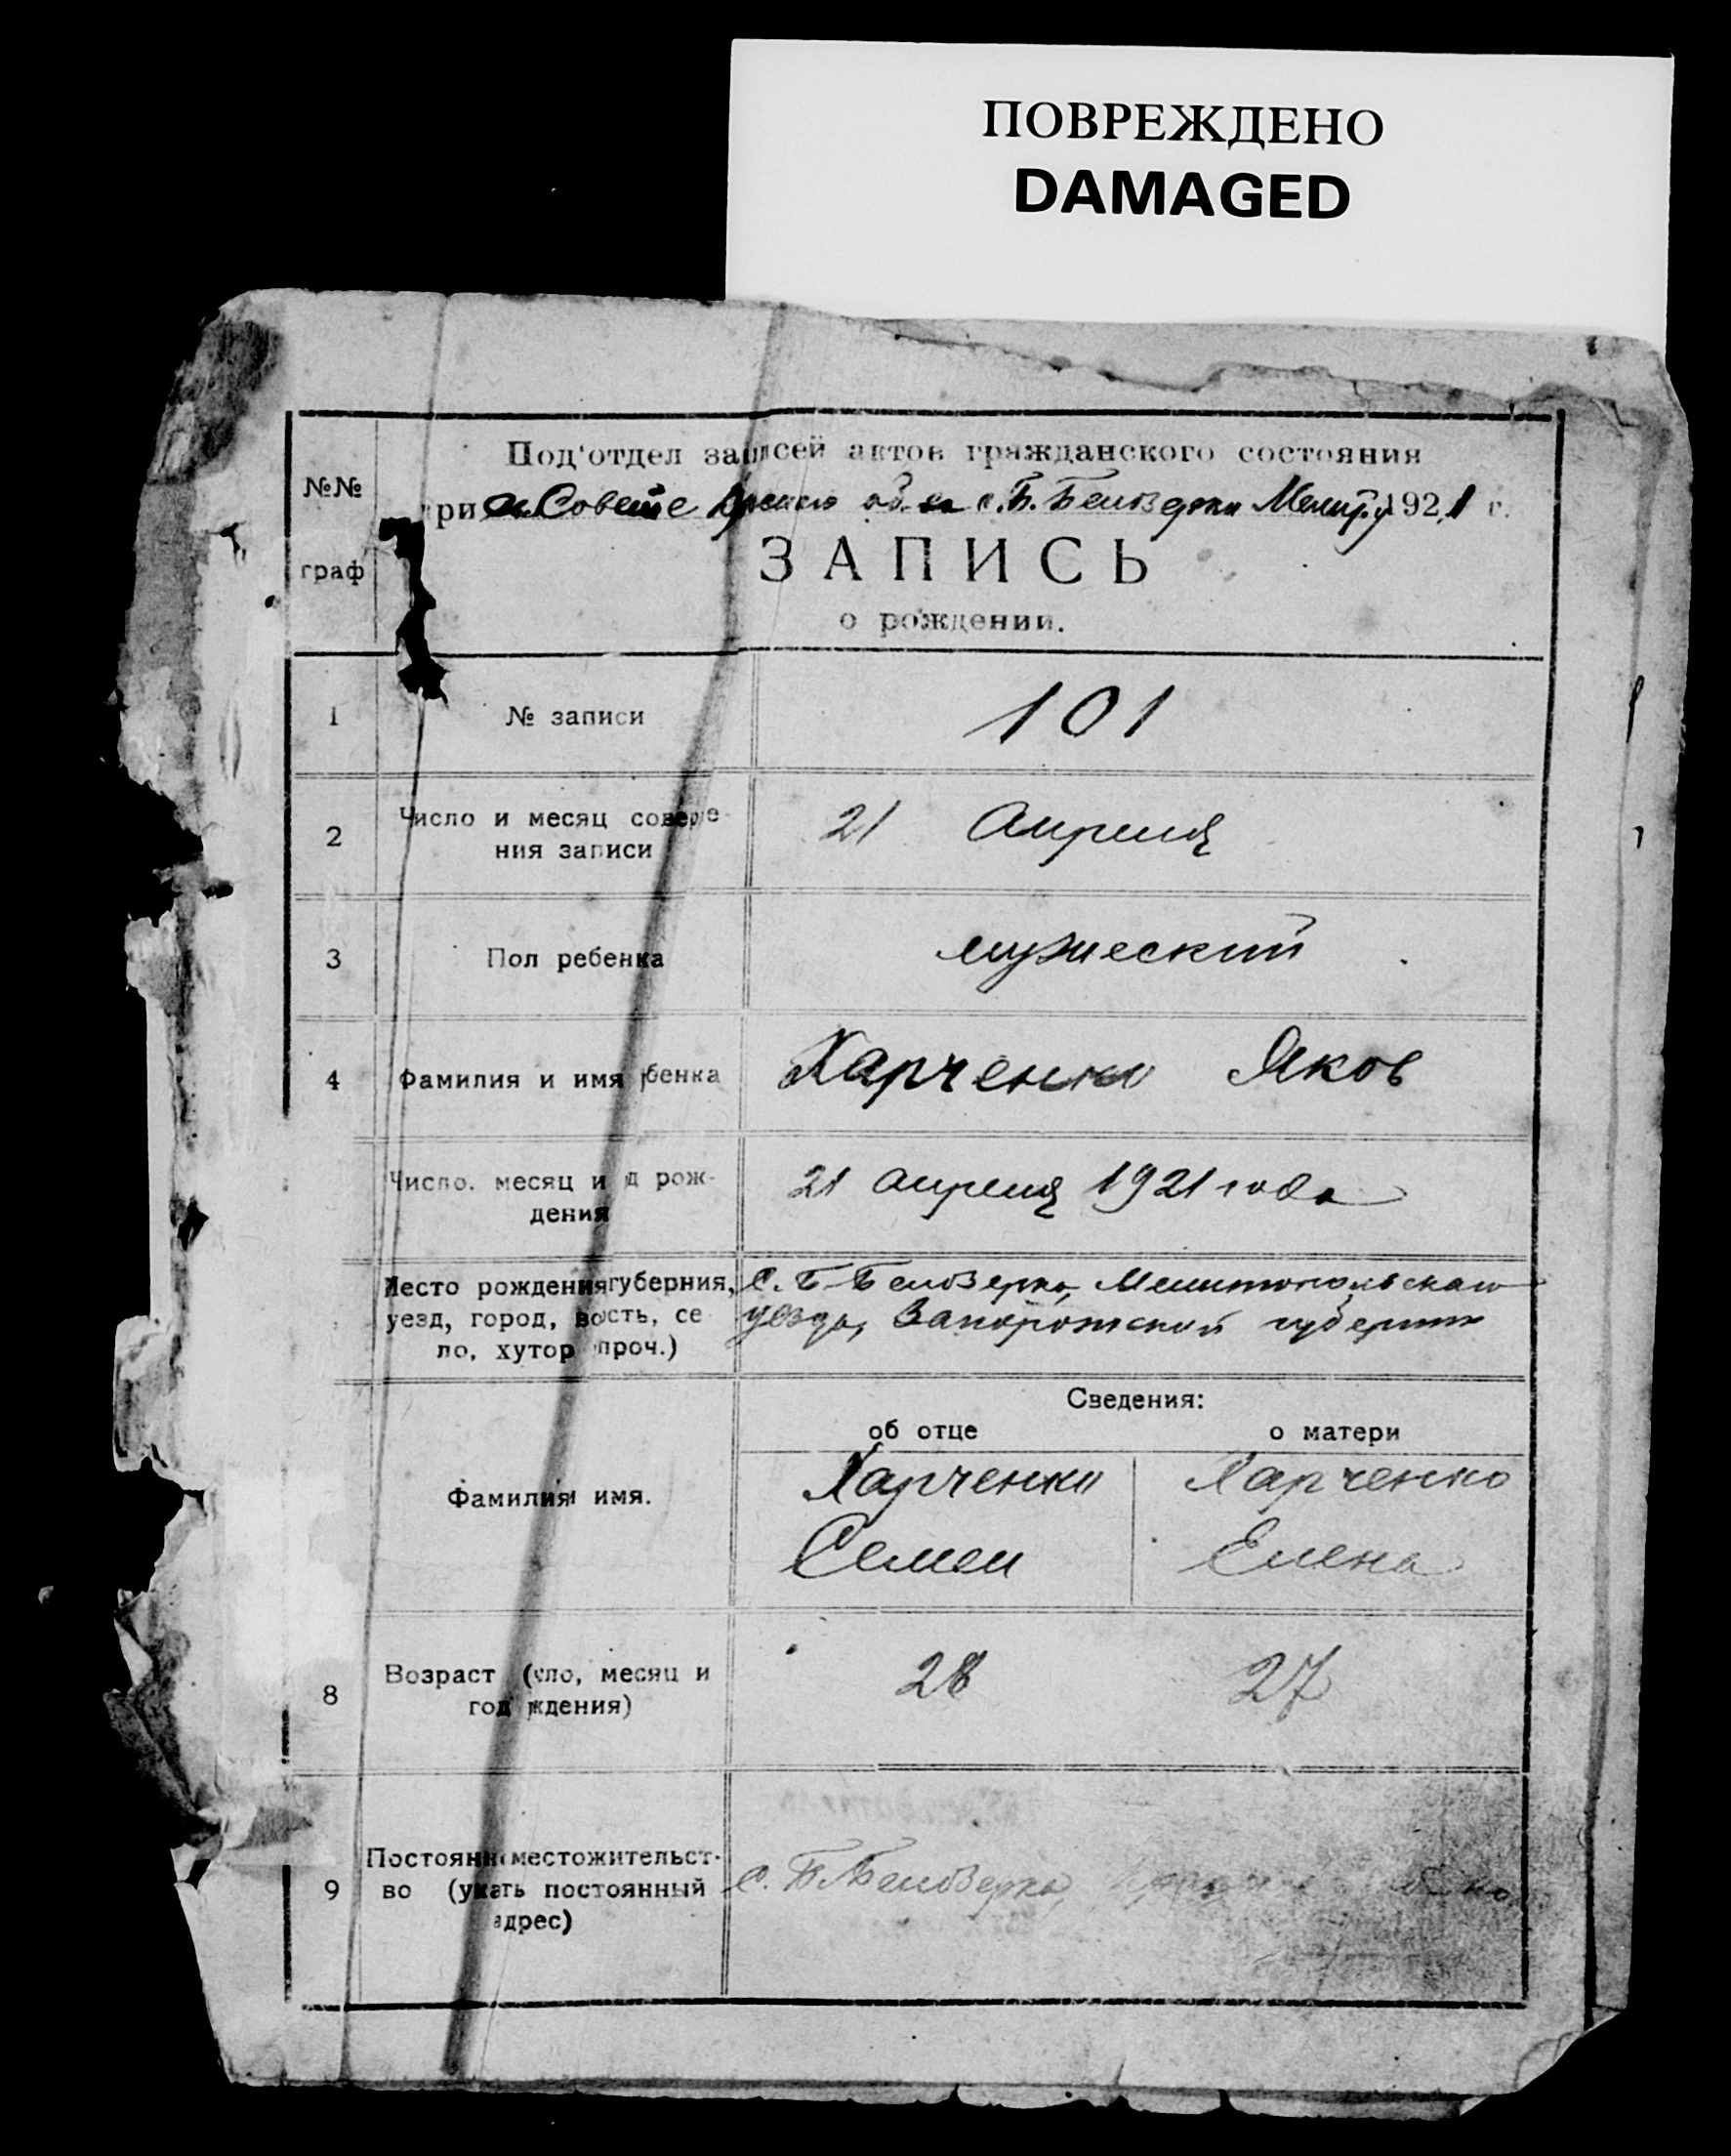 ПОВРЕЖДЕНО
DAMAGED
№№
граф
Под'отдел записей актов гражданского состояния
ри Совете с. Б. Белозерки 1921 г.
ЗАПИСЬ
о рождении.
1
№ записи
101
2
Число и месяц соверше-
ния записи
21 Апреля
3
Пол ребенка
мужеский
4
Фамилия и имя рбенка
Харченко Яков
Число. месяц и д рож-
дения
21 апреля 1921 года
Место рождения губерния,
уезд, город, вость, се
ло, хутор проч.)
С. Б-Белозерка, Мелитопольскаго
уезда, Запорожской губернии
Сведения:
об отце
о матери
Фамилия и имя.
Харченко
Семен
Харченко
Елена
8
Возраст (сло, месяц и
год рждения)
28
27
9
Постоянн местожительст-
во (укать постоянный
адрес)
с. Б. Белозерка,